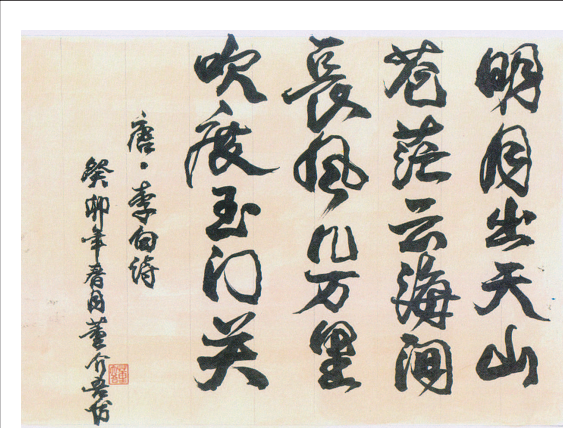 明月出天山
苍茫云海间
長风几万里
吹度玉门关
唐·李白诗
癸卯年春月董介吾书